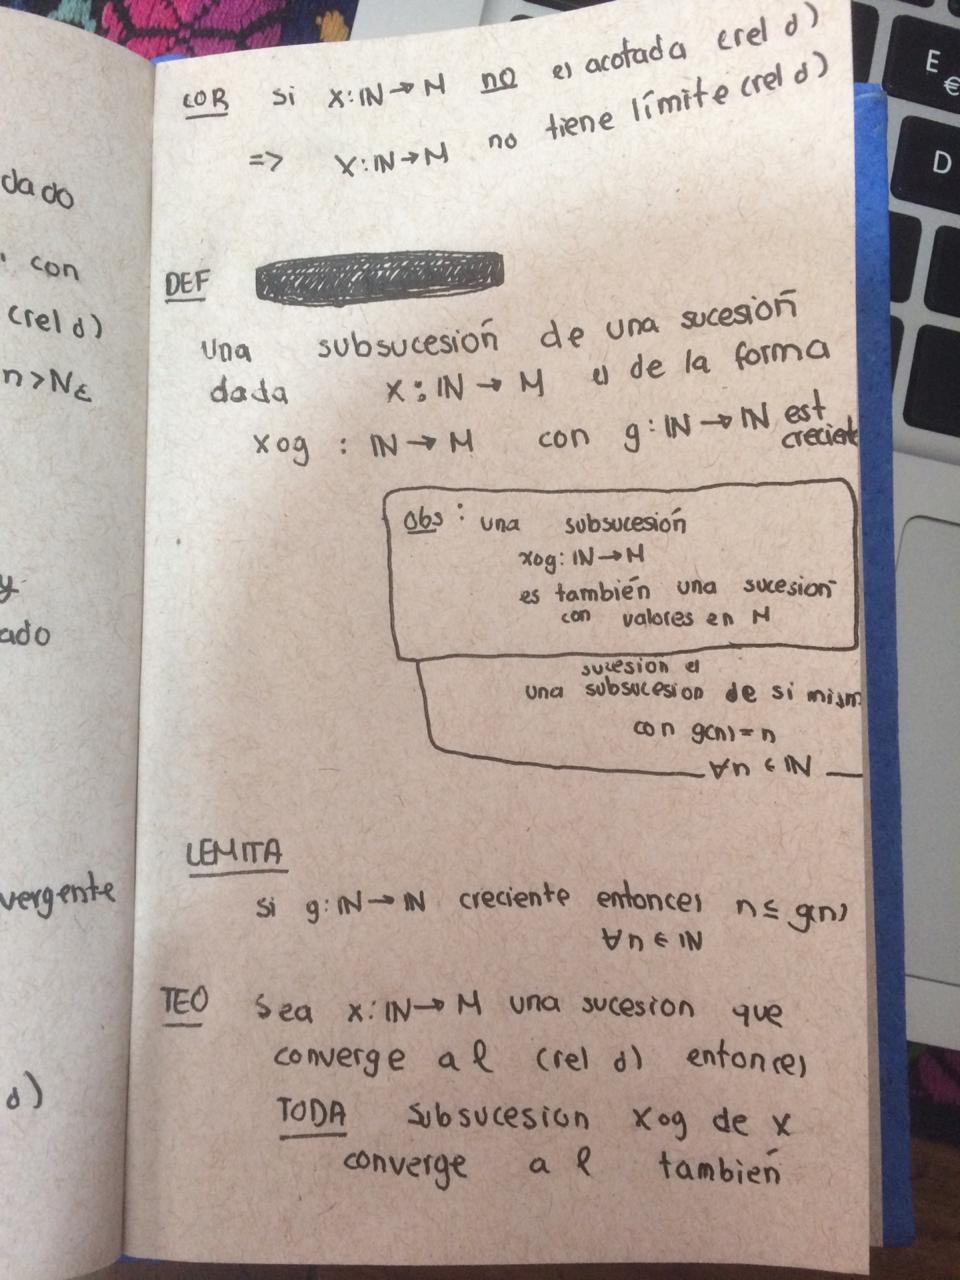 dado
con
(rel d)
n>Nε
y
ado
vergente
d)
COR si x:ℕ→M no es acotada (rel d)
=> x:ℕ→M no tiene límite (rel d)
DEF
Una subsucesión de una sucesión
dada x:ℕ→M es de la forma
xog : ℕ→M con g:ℕ→ℕ est
creciente
Obs: una subsucesión
xog:ℕ→M
es también una sucesion
con valores en M
sucesion es
una subsucesion de si mism
con g(n)=n
∀n∈ℕ
LEMITA
Si g:ℕ→ℕ creciente entonces n≤g(n)
∀n∈ℕ
TEO Sea x:ℕ→M una sucesion que
converge a l (rel d) entonces
TODA subsucesion xog de x
converge a l también
E
€
D